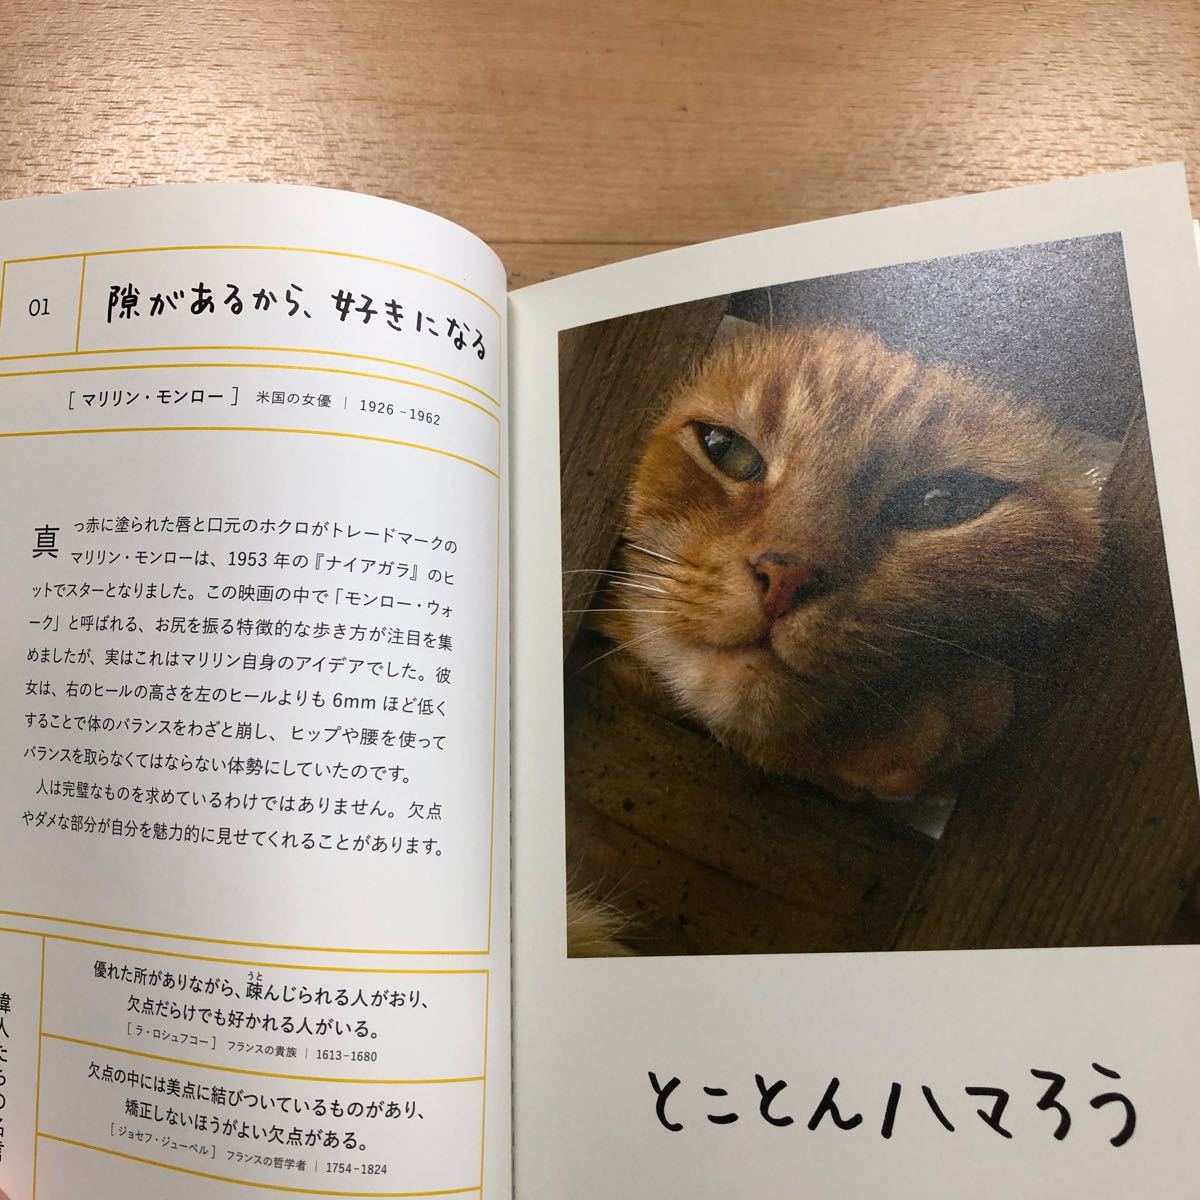 01
隙があるから、好きになる
[ マリリン・モンロー ] 米国の女優 | 1926 – 1962
真っ赤に塗られた唇と口元のホクロがトレードマークの
マリリン・モンローは、1953 年の『ナイアガラ』のヒ
ットでスターとなりました。この映画の中で「モンロー・ウォ
ーク」と呼ばれる、お尻を振る特徴的な歩き方が注目を集
めましたが、実はこれはマリリン自身のアイデアでした。彼
女は、右のヒールの高さを左のヒールよりも 6mm ほど低く
することで体のバランスをわざと崩し、ヒップや腰を使って
バランスを取らなくてはならない体勢にしていたのです。
人は完璧なものを求めているわけではありません。欠点
やダメな部分が自分を魅力的に見せてくれることがあります。
偉人たちの名言
優れた所がありながら、疎んじられる人がおり、
うと
欠点だらけでも好かれる人がいる。
[ ラ・ロシュフコー ] フランスの貴族 | 1613–1680
欠点の中には美点に結びついているものがあり、
矯正しないほうがよい欠点がある。
[ ジョセフ・ジューベル ] フランスの哲学者 | 1754–1824
とことんハマろう